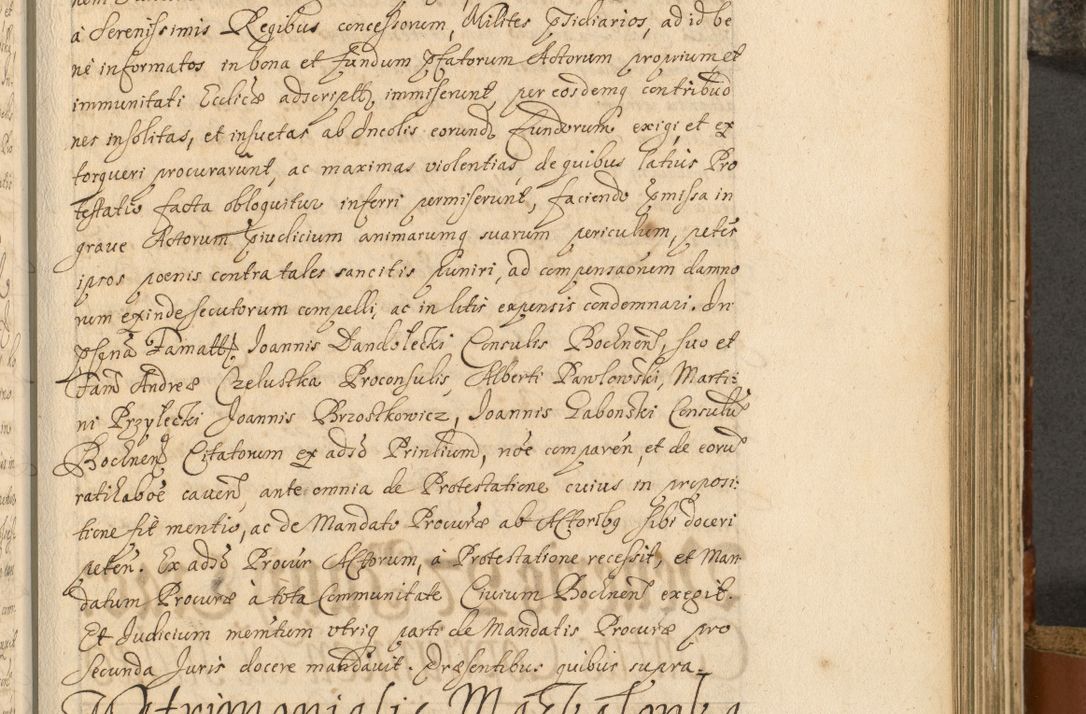 à Serenissimis Regibus concessorum, Milites Psidiarios, ad id be
ne informatos in bona et fundum Pfatorum Actorum proprium, et
immunitati Eccliæ adscriptū, immiserunt, per eosdemq contributio
nes insolitas, et insuetas ab Incolis eorund fundorum exigi, et ex
torqueri procurarunt, ac maximas violentias, de quibus latius Pro
testatio facta obloquitur inferri permiserunt, faciendo Pmissa in
graue Actorum Piudicium animarumq suarum periculum, petēs
ipsos poenis contra tales sancitis puniri, ad compensaonem damno
rum exinde secutorum compelli, ac in litis expensis condemnari. In
Psona Famatt Joannis Dandolecki Consulis Bochnen, suo et
Fam Andreæ Czelustka Proconsulis, Alberti Pawlowski, Marti:
ni Przylecki Joannis Brzostkowicz, Joannis Labonski Consulū
Bochnen Citatorum ex adso Prinlium, noe comparen, et de eorū
ratihaboe caven, ante omnia de Protestatione cuius in proposi:
tione fit mentio, ac de Mandato Procuræ ab Actoribq sibi doceri
peten. Ex adso Procur Actorum, à Protestatione recessit, et Man
datum Procuræ à tota Communitate Civium Bochnen exegit.
Et Judicium memtum vtriq parti de Mandatis Procuræ pro
Secunda Juris docere mandauit. Præsentibus quibus supra.
Matrimonialis